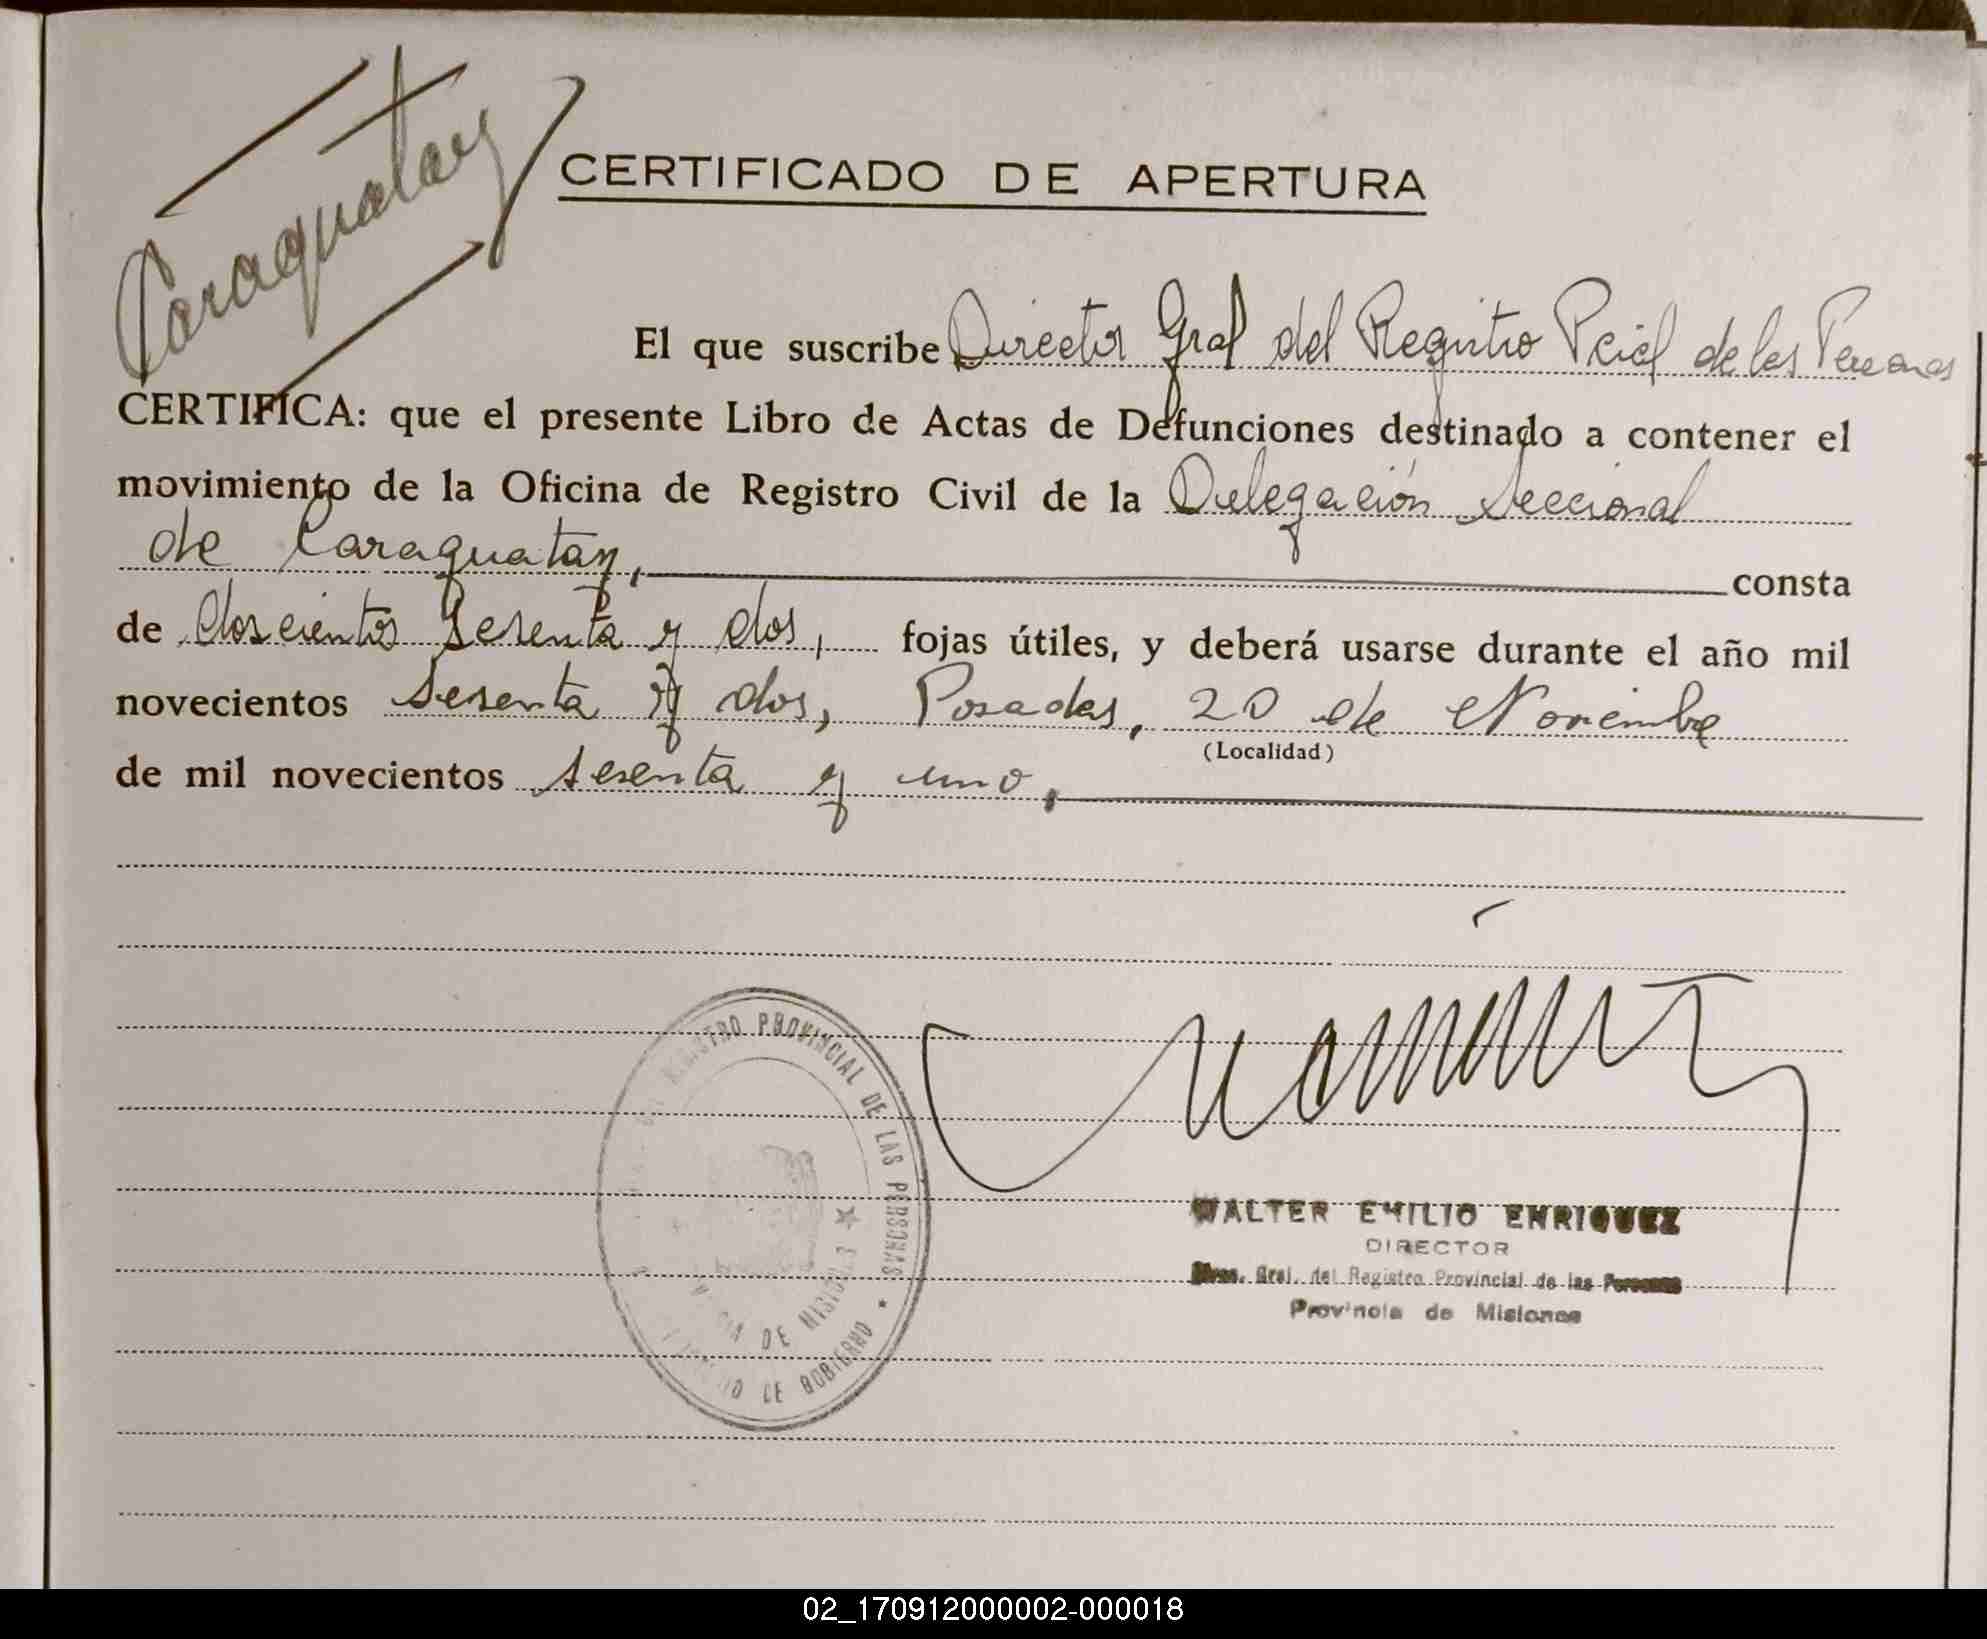 Caraguatay
CERTIFICADO DE APERTURA
El que suscribe Director Gral del Registro Pcial de las Personas
CERTIFICA: que el presente Libro de Actas de Defunciones destinado a contener el
movimiento de la Oficina de Registro Civil de la Delegación Seccional
de Caraguatay, consta
de doscientos sesenta y dos, fojas útiles, y deberá usarse durante el año mil
novecientos sesenta y dos, Posadas, 20 de Noviembre
(Localidad)
de mil novecientos sesenta y uno,
REGISTRO PROVINCIAL DE LAS PERSONAS
DE MISIONES
DE GOBIERNO
WALTER EMILIO ENRIQUEZ
DIRECTOR
Gral. del Registro Provincial de las Personas
Provincia de Misiones
02_170912000002-000018